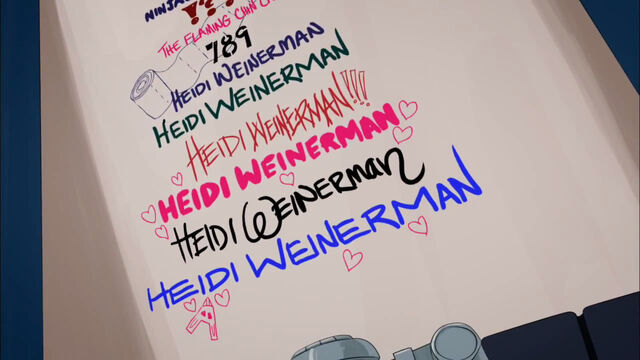 NINJA
???
THE FLAMING CHIN
789
HEIDI WEINERMAN
HEIDI WEINERMAN
HEIDI WEINERMAN!!!
HEIDI WEINERMAN
HEIDI WEINERMAN
HEIDI WEINERMAN